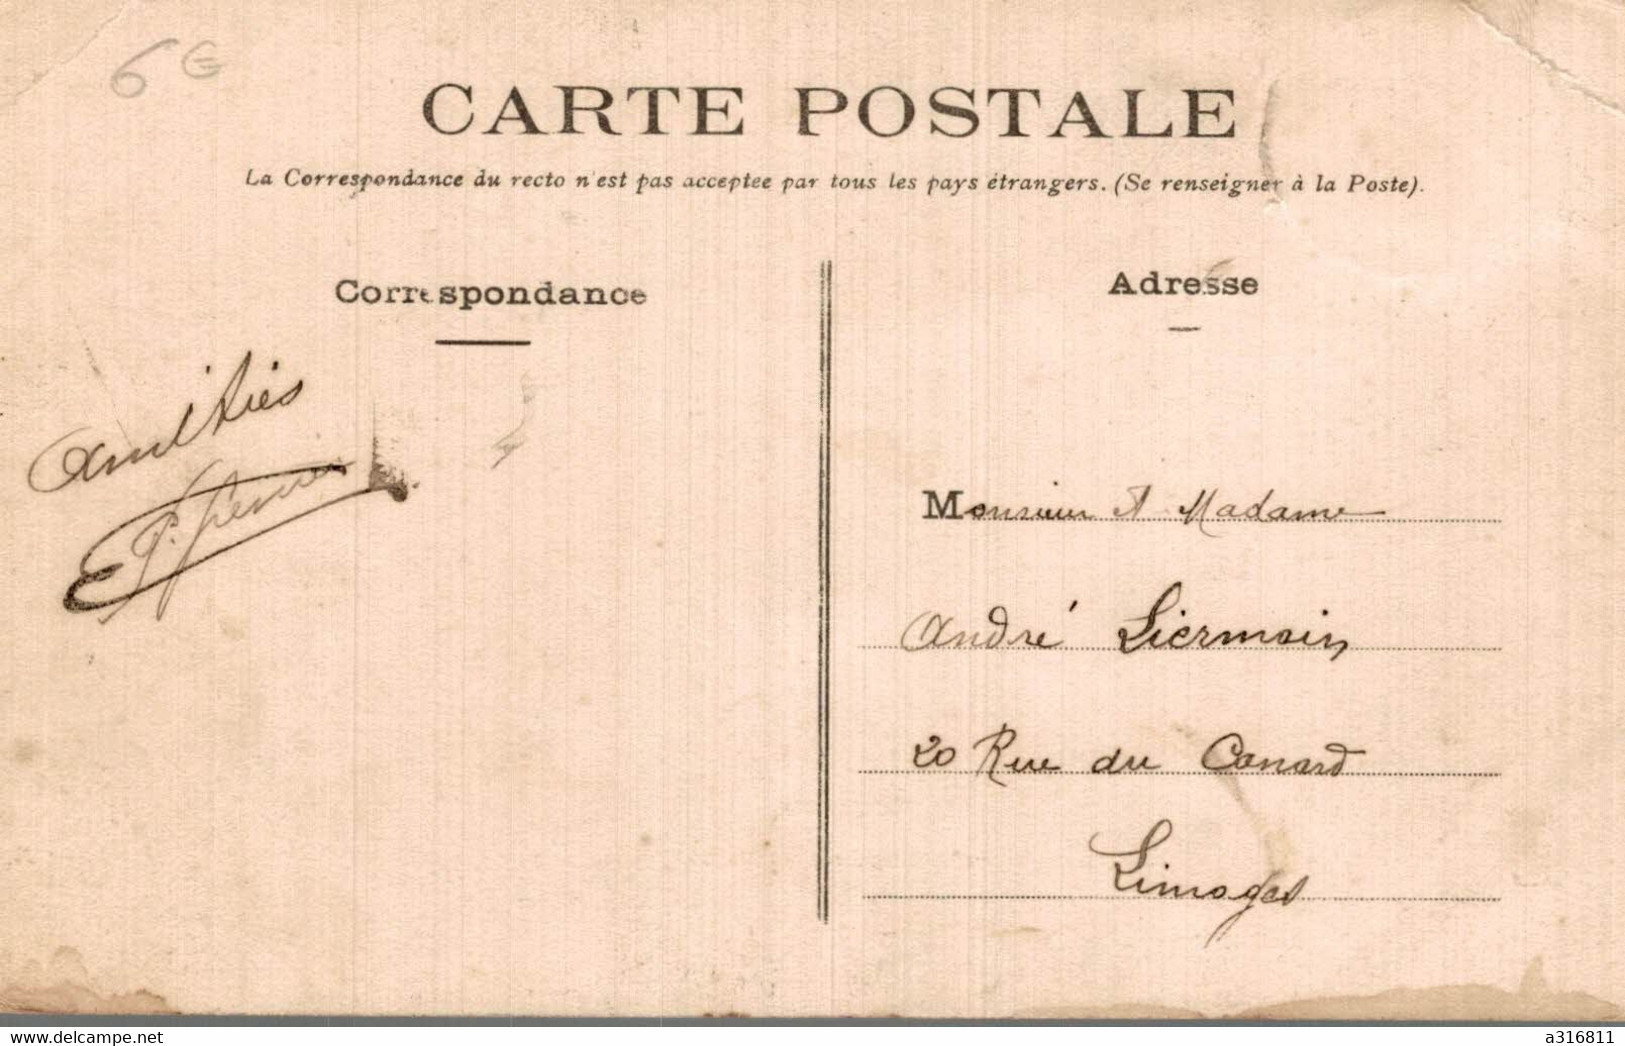 6 €
CARTE POSTALE
La Correspondance du recto n'est pas acceptee par tous les pays étrangers. (Se renseigner à la Poste).
Correspondance
Adresse
Amitiés
Monsieur et Madame
André Liermain
20 Rue du Canard
Limoges
https://www.delcampe.net
a316811